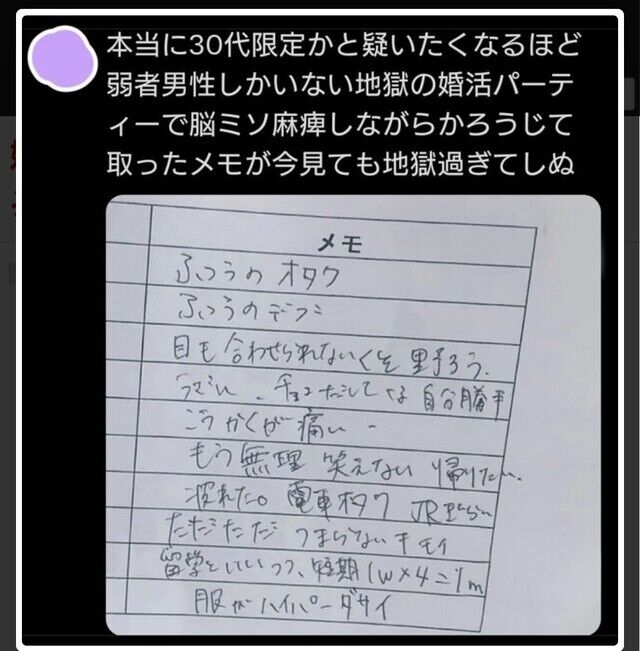 本当に30代限定かと疑いたくなるほど
弱者男性しかいない地獄の婚活パーテ
ィーで脳ミソ麻痺しながらかろうじて
取ったメモが今見ても地獄過ぎてしぬ
メモ
ふつうのオタク
ふつうのデブ
目も合わせられないくそ野ろう.
うざい、チョコだしてな 自分勝手
こうかくが痛い
もう無理 笑えない 帰りたい.
疲れた。 電車オタク JR
ただただ つまらない キモイ
留学といいつつ、短期 1w×4=1m
服がハイパーダサイ